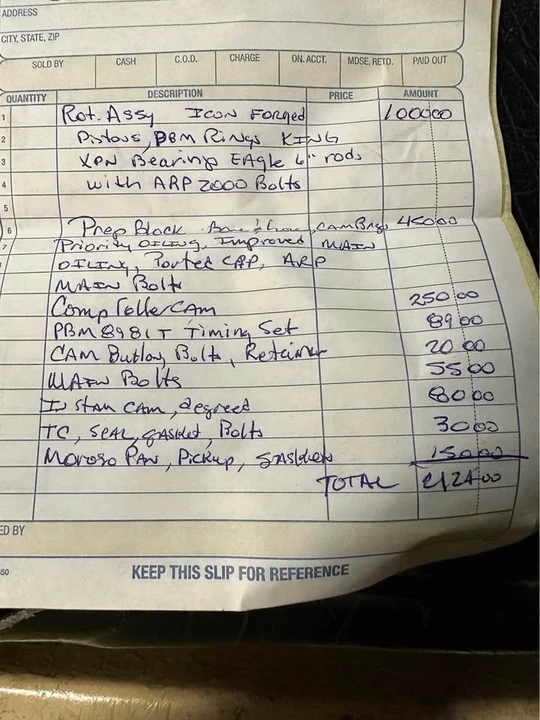 ADDRESS
CITY, STATE, ZIP
SOLD BY CASH C.O.D. CHARGE ON. ACCT. MDSE. RETD. PAID OUT
QUANTITY DESCRIPTION PRICE AMOUNT
1 Rot. Assy ICON Forged 1000 00
2 Pistons, PBM Rings KING
3 XPN Bearings EAgle 6" rods
4 with ARP 2000 Bolts
5
6 Prep Block CAM Brgs 450 00
7 Priority OILING, Improved MAIN
OILING, Ported CAP, ARP
MAIN Bolts
Comp Roller CAM 250 00
PBM 8981T Timing Set 89 00
CAM Button, Bolts, Retainer 20 00
MAIN Bolts 55 00
Install CAM, degreed 80 00
TC, SEAL, gasket, Bolts 30 00
Moroso PAN, Pickup, gaskets 150 00
TOTAL 2124 00
ED BY
50 KEEP THIS SLIP FOR REFERENCE